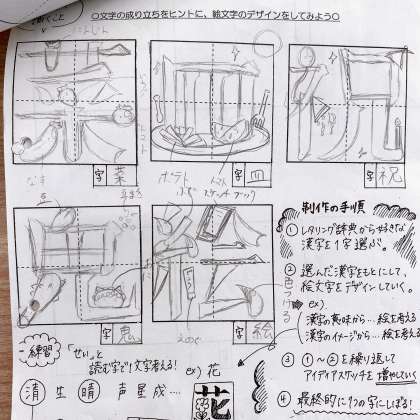 ○文字の成り立ちをヒントに、絵文字のデザインをしてみよう○
にんじん
字 菜
字 皿
字 祝
なす
ポテト
トマト
スケッチブック
字 鬼
字 絵
えのぐ
制作の手順
① レタリング辞典から好きな
漢字を1字選ぶ。
② 選んだ漢字をもとにして、
絵文字をデザインしていく。
ex)
漢字の意味から…絵を考える
漢字のイメージから…絵を考え
③ ①~②を繰り返して
アイディアスケッチを増やしていく
④ 最終的に1つの字にしぼる!
練習
「せい」と
読む字で1文字考える!
ex) 花
清 生 晴 声 星 成 …